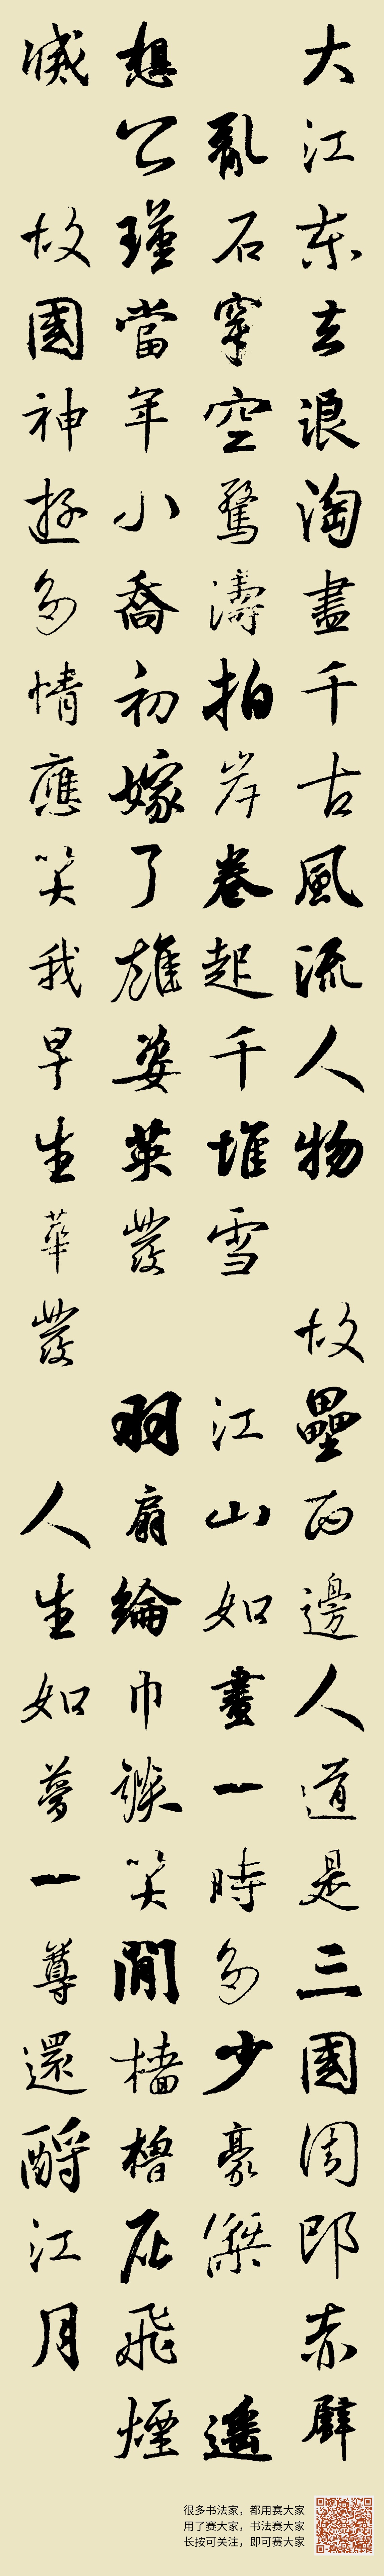 大江東去浪淘盡千古風流人物 故壘西邊人道是三國周郎赤壁
亂石穿空驚濤拍岸卷起千堆雪 江山如畫一時多少豪傑 遙
想公瑾當年小喬初嫁了雄姿英發 羽扇綸巾談笑間檣櫓灰飛煙
滅 故國神遊多情應笑我早生華發 人生如夢一尊還酹江月
很多书法家，都用赛大家
用了赛大家，书法赛大家
长按可关注，即可赛大家